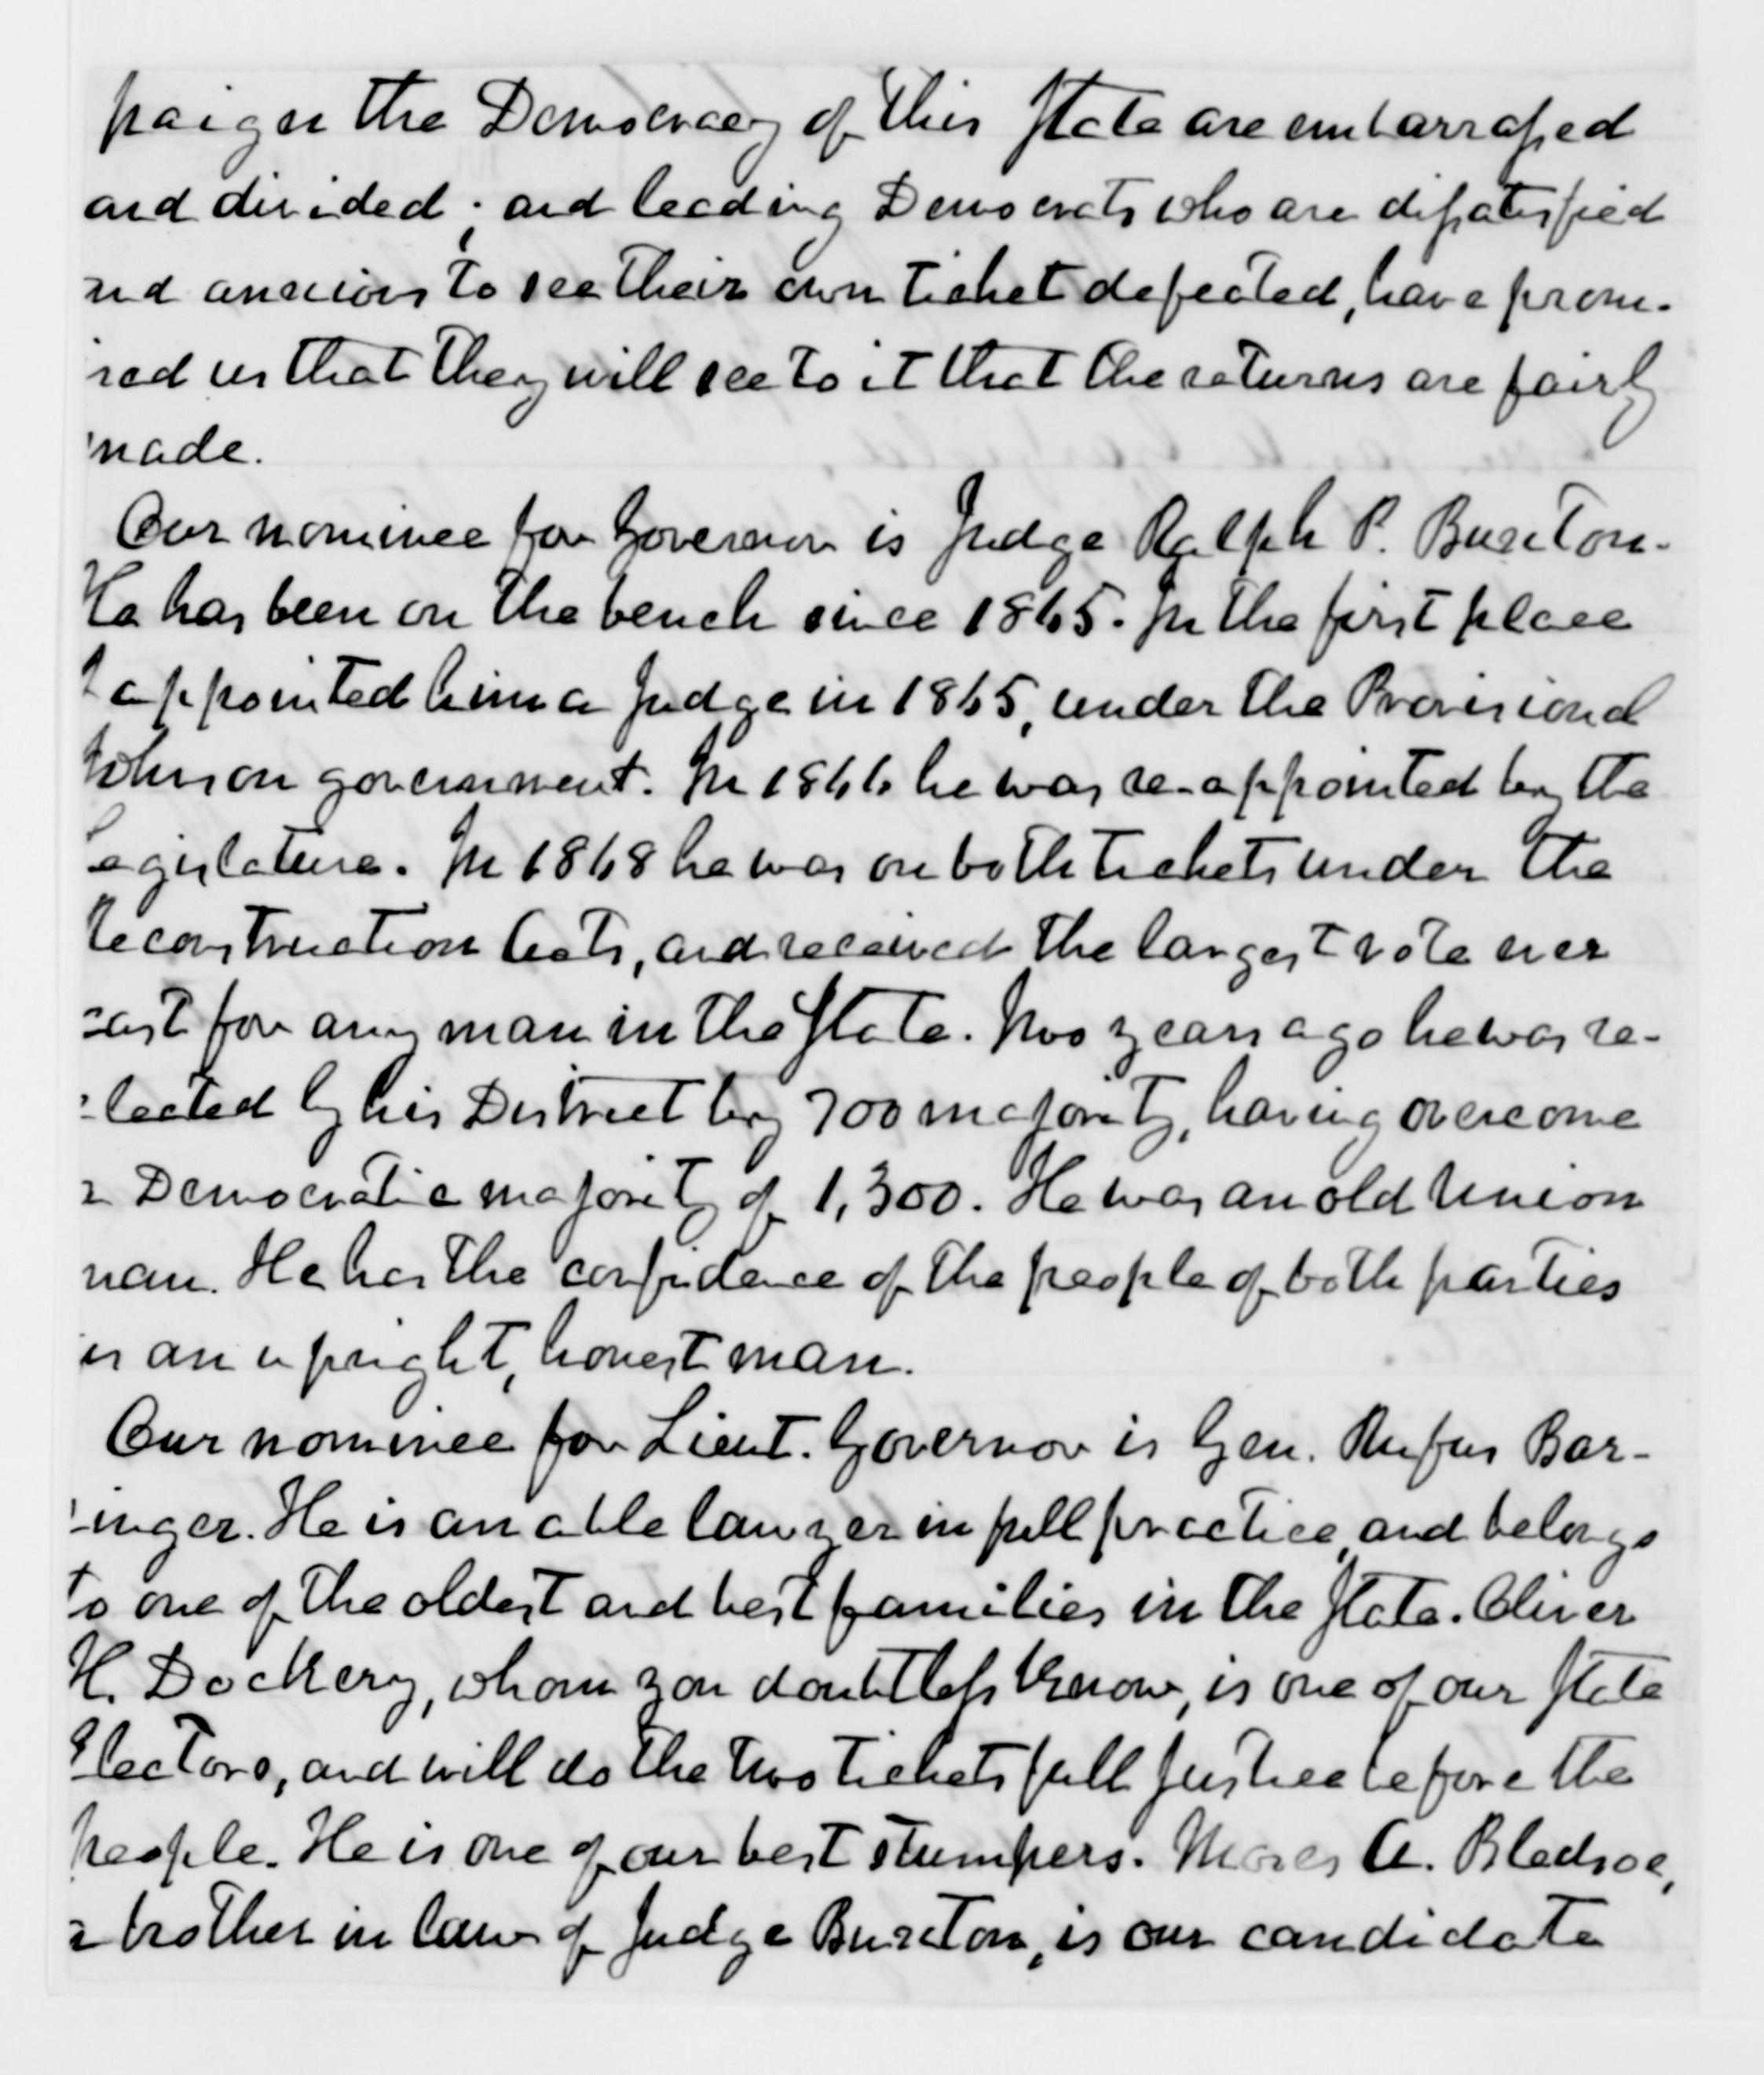 paign the Democracy of this State are embarrassed
and divided; and leading Democrats who are dissatisfied
and anxious to see their own ticket defeated, have prom-
ised us that they will see to it that the returns are fairly
made.
Our nominee for Governor is Judge Ralph P. Buxton.
He has been on the bench since 1865. In the first place
I appointed him a Judge in 1865, under the Provisional
Johnson government. In 1866 he was re-appointed by the
Legislature. In 1868 he was on both tickets under the
Reconstruction Acts, and received the largest vote ever
cast for any man in the State. Two years ago he was re-
elected by his District by 700 majority, having overcome
a Democratic majority of 1,300. He was an old Union
man. He has the confidence of the people of both parties
is an upright, honest man.
Our nominee for Lieut. Governor is Gen. Rufus Bar-
ringer. He is an able lawyer in full practice, and belongs
to one of the oldest and best families in the State. Oliver
H. Dockery, whom you doubtless know, is one of our State
Electors, and will do the two tickets full justice before the
people. He is one of our best stumpers. Moses A. Bledsoe,
a brother in law of Judge Buxton, is our candidate